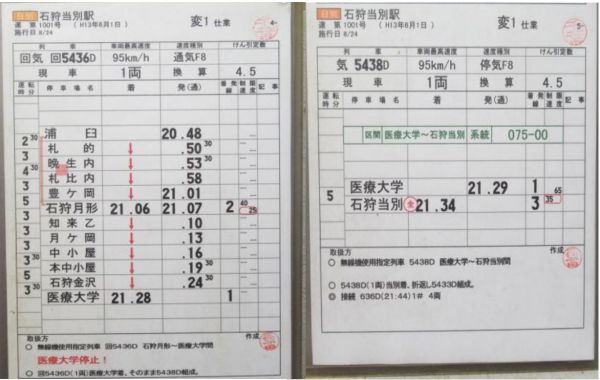 日別 石狩当別駅
達 第1001号 （H13年6月1日） 変1 仕業 4-
施行日 8/24
列車 車両最高速度 速度種別 けん引定数
回気 回5436D 95km/h 通気F8
現車 1両 換算 4.5
運転時分 停車場名 着 発(通) 着発線 制限速度 記事
浦臼 20.48
2 30
札的 ↓ .50 30
3
晩生内 ↓ .53 30
4 30
札比内 ↓ .58
3
豊ケ岡 ↓ 21.01
5
石狩月形 21.06 21.07 2 40 25
3
知来乙 ↓ .10
3
月ケ岡 ↓ .13
3
中小屋 ↓ .16
3 30
本中小屋 ↓ .19 30
5
石狩金沢 ↓ .24 30
3 30
医療大学 21.28 1
取扱方 作成
○ 無線機使用指定列車 回5436D 石狩月形～医療大学間
医療大学停止！
○ 回5436D(1両)医療大学着、そのまま5438D組成。
日別 石狩当別駅
達 第1001号 （H13年6月1日） 変1 仕業 5-
施行日 8/24
列車 車両最高速度 速度種別 けん引定数
気 5438D 95km/h 停気F8
現車 1両 換算 4.5
運転時分 停車場名 着 発(通) 着発線 制限速度 記事
区間 医療大学～石狩当別 系統 075-00
医療大学 21.29 1 65
5
石狩当別 金 21.34 3 35
取扱方 作成
○ 無線機使用指定列車 5438D 医療大学～石狩当別間
○ 5438D(1両)当別着、折返し5433D組成。
◎ 接続 636D(21:44)1# 4両